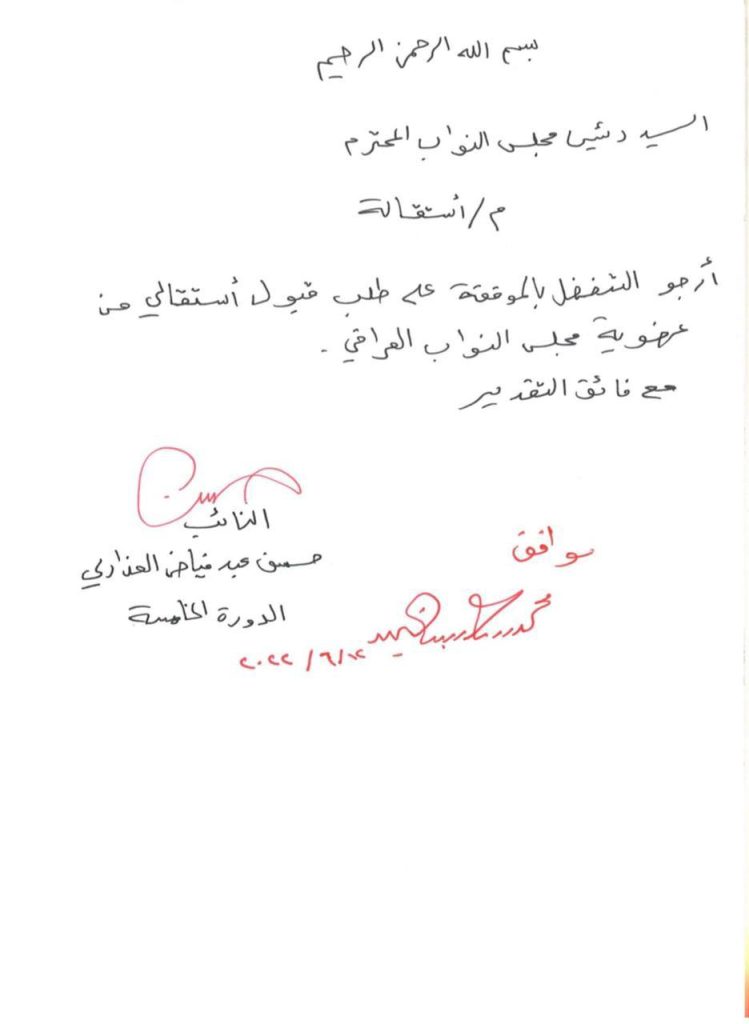 بسم الله الرحمن الرحيم
السيد رئيس مجلس النواب المحترم
م/أستقالة
أرجو التفضل بالموقفة على طلب قبول أستقالتي من
عضوية مجلس النواب العراقي .
مع فائق التقدير
النائب
حسن عبد فياض العذاري
الدورة الخامسة
موافق
محمد
٢٠٢٢/٦/١٢